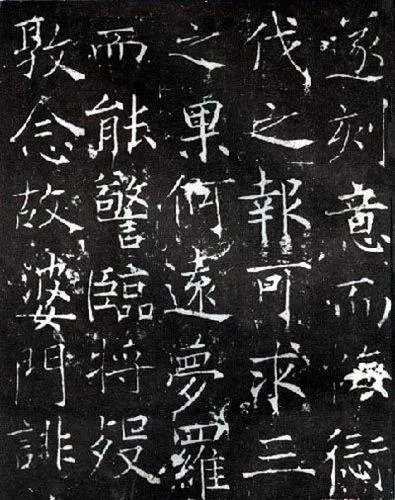 遂刻意而悔愆
伐之報可求三
之果何遠夢羅
而能警臨將歿
敦念故婆門誹